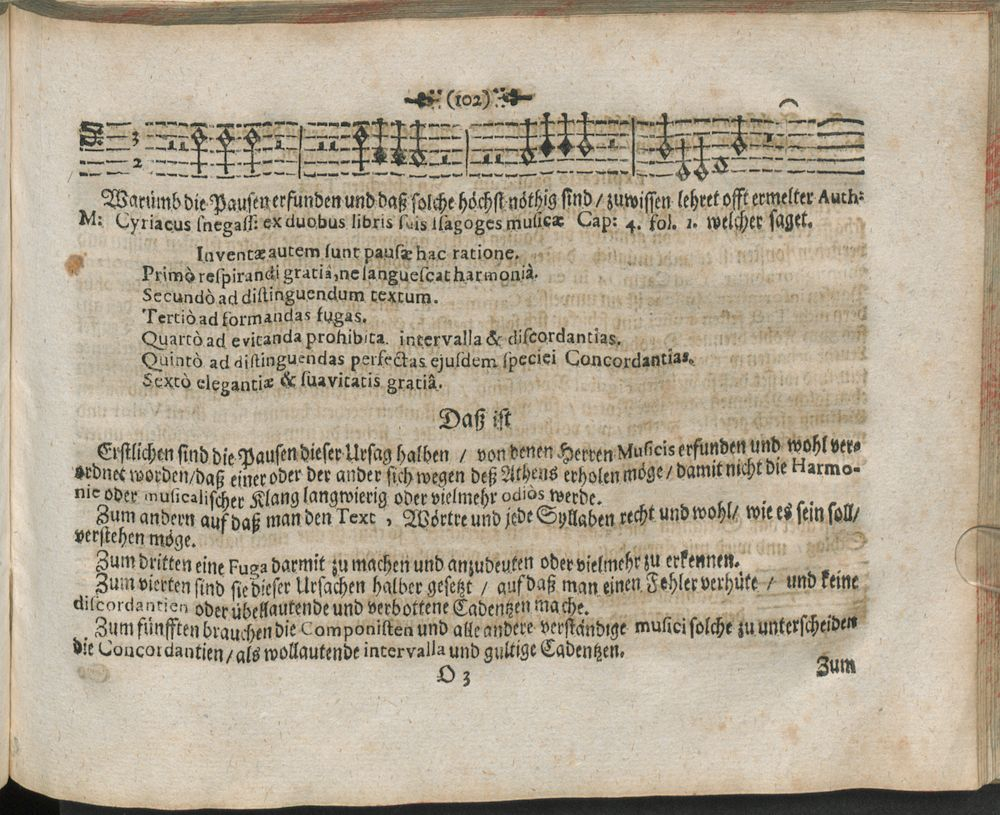 (102)
3
2
Warumb die Pausen erfunden und daß solche höchst nöthig sind / zuwissen lehret offt ermelter Auth:
M: Cyriacus snegass: ex duobus libris suis Isagoges musicæ Cap: 4. fol. 1. welcher saget.
Inventæ autem sunt pausæ hac ratione.
Primò respirandi gratiâ, ne languescat harmoniâ.
Secundò ad distinguendum textum.
Tertiò ad formandas fugas.
Quartò ad evitanda prohibita. intervalla & discordantias.
Quintò ad distinguendas perfectas ejusdem speciei Concordantias.
Sextò elegantiæ & suavitatis gratiâ.
Daß ist
Erstlichen sind die Pausen dieser Ursag halben / von denen Herren Musicis erfunden und wohl ver-
ordnet worden/daß einer oder der ander sich wegen deß Athens erholen möge / damit nicht die Harmo-
nie oder musicalischer Klang langwierig oder vielmehr odiòs werde.
Zum andern auf daß man den Text , Wörtre und jede Syllaben recht und wohl/ wie es sein soll/
verstehen möge.
Zum dritten eine Fuga darmit zu machen und anzudeuten oder vielmehr zu erkennen.
Zum vierten sind sie dieser Ursachen halber gesetzt / auf daß man einen Fehler verhüte / und keine
discordantien oder übellautende und verbottene Cadentzen mache.
Zum fünfften brauchen die Componisten und alle andere verständige musici solche zu unterscheiden
die Concordantien / als wollautende intervalla und gultige Cadentzen.
O 3
Zum